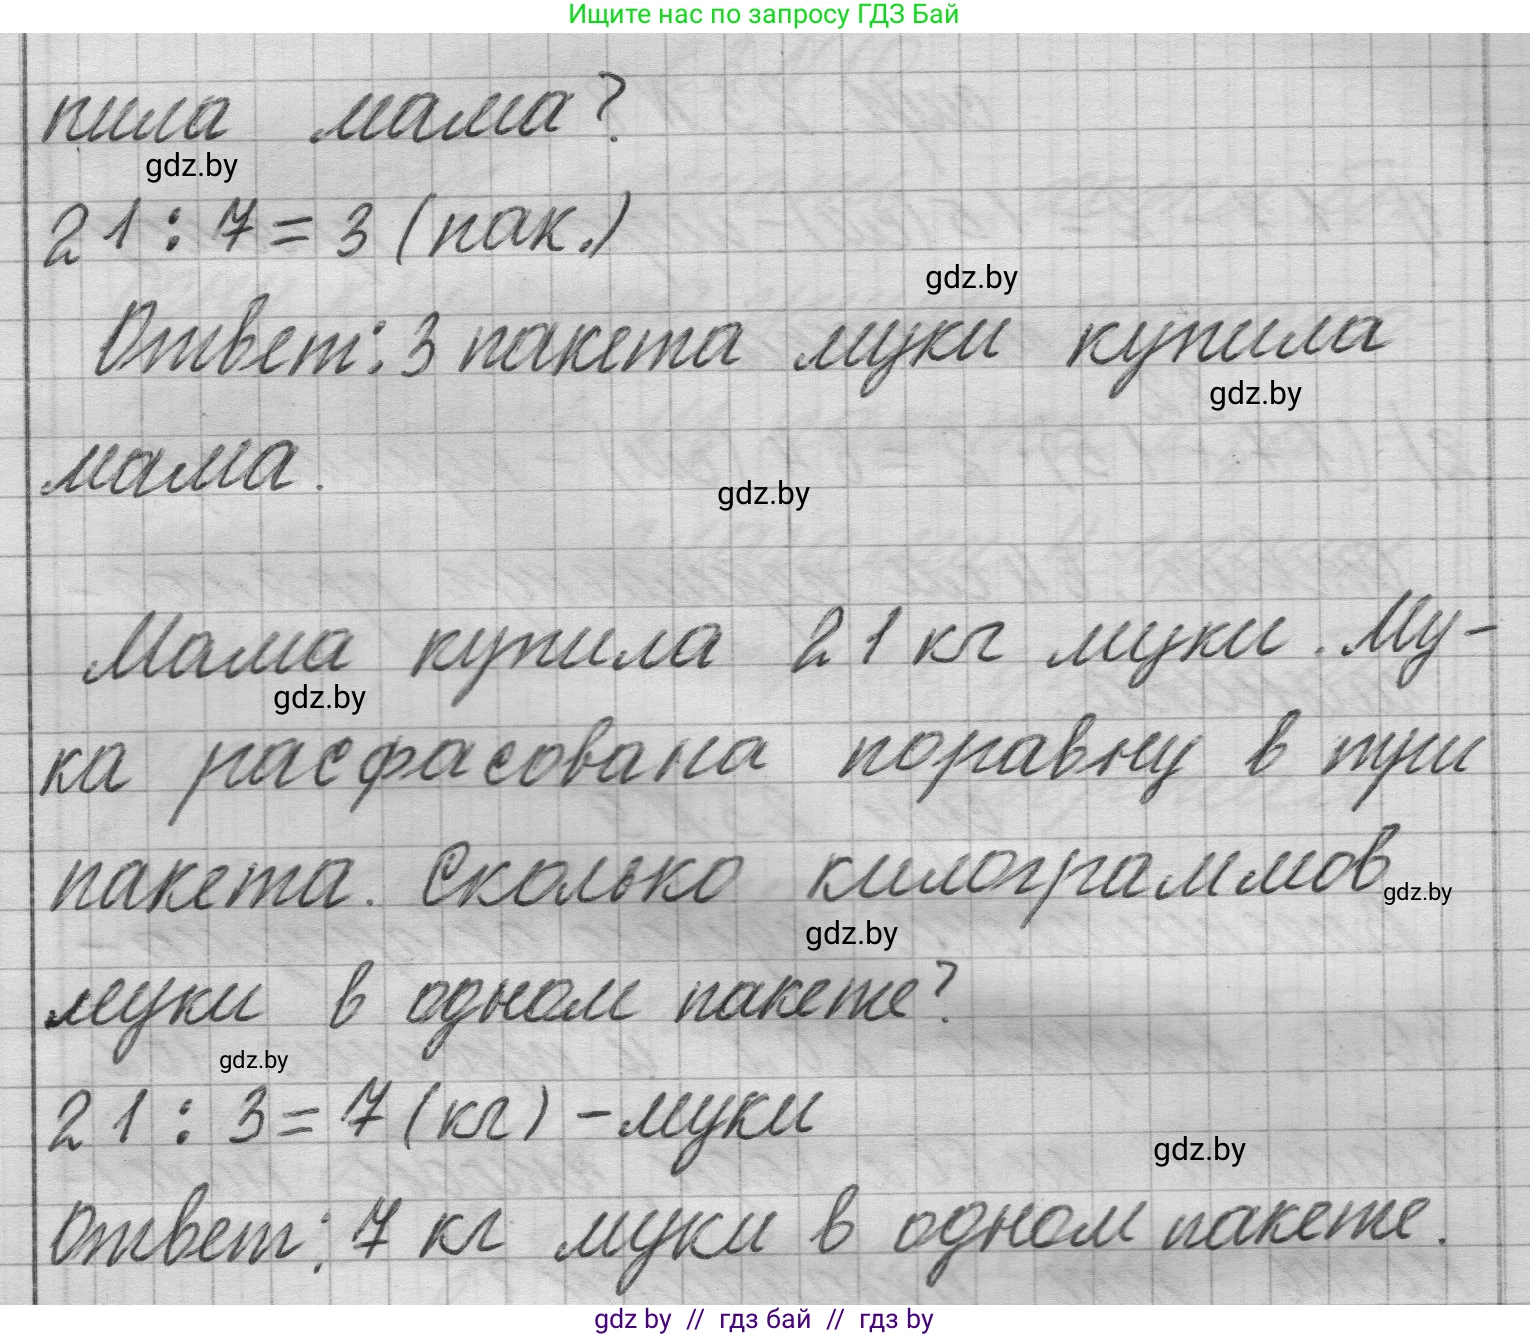 Ищите нас по запросу ГДЗ Бай
пила мама?
gdz.by
21 : 7 = 3 (пак.)
gdz.by
Ответ: 3 пакета муки купила
gdz.by
мама.
gdz.by
Мама купила 21 кг муки. Му-
gdz.by
ка расфасована поравну в три
пакета. Сколько килограммов
gdz.by
gdz.by
муки в одном пакете?
gdz.by
21 : 3 = 7 (кг) - муки
gdz.by
Ответ: 7 кг муки в одном пакете.
gdz by // гдз бай // гдз by